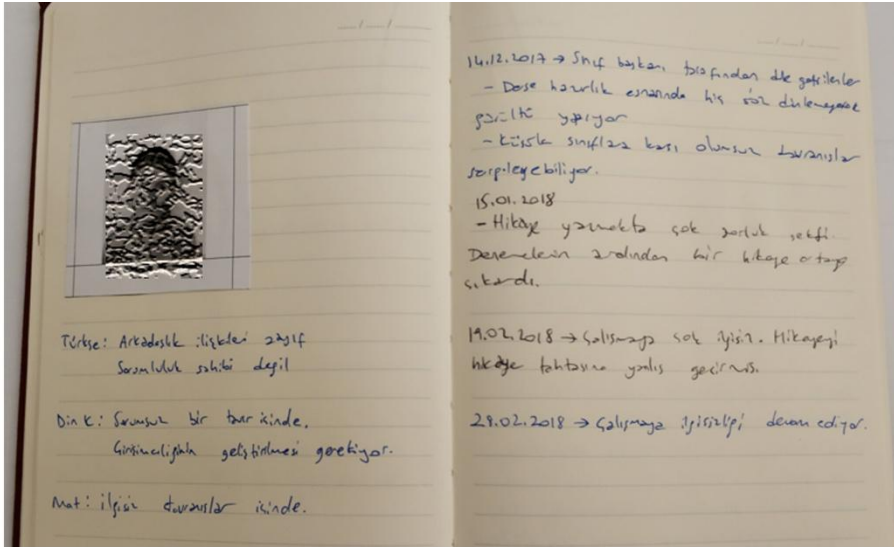 Türkçe: Arkadaşlık ilişkileri zayıf
Sorumluluk sahibi değil
Din K: Sorumsuz bir tavır içinde.
Girişimciliğinin geliştirilmesi gerekiyor.
Mat: ilgisiz davranışlar içinde.
14.12.2017 → Sınıf başkanı tarafından dile getirilenler
- Derse hazırlık esnasında hiç söz dinlemeyerek
gürültü yapıyor
- Küçük sınıflara karşı olumsuz davranışlar
sergileyebiliyor.
15.01.2018
- Hikaye yazmakta çok zorluk çekti.
Denemelerin ardından bir hikaye ortaya
çıkardı.
19.02.2018 → Çalışmaya çok ilgisiz. Hikayeyi
hikaye tahtasına yanlış geçirmiş.
28.02.2018 → Çalışmaya ilgisizliği devam ediyor.